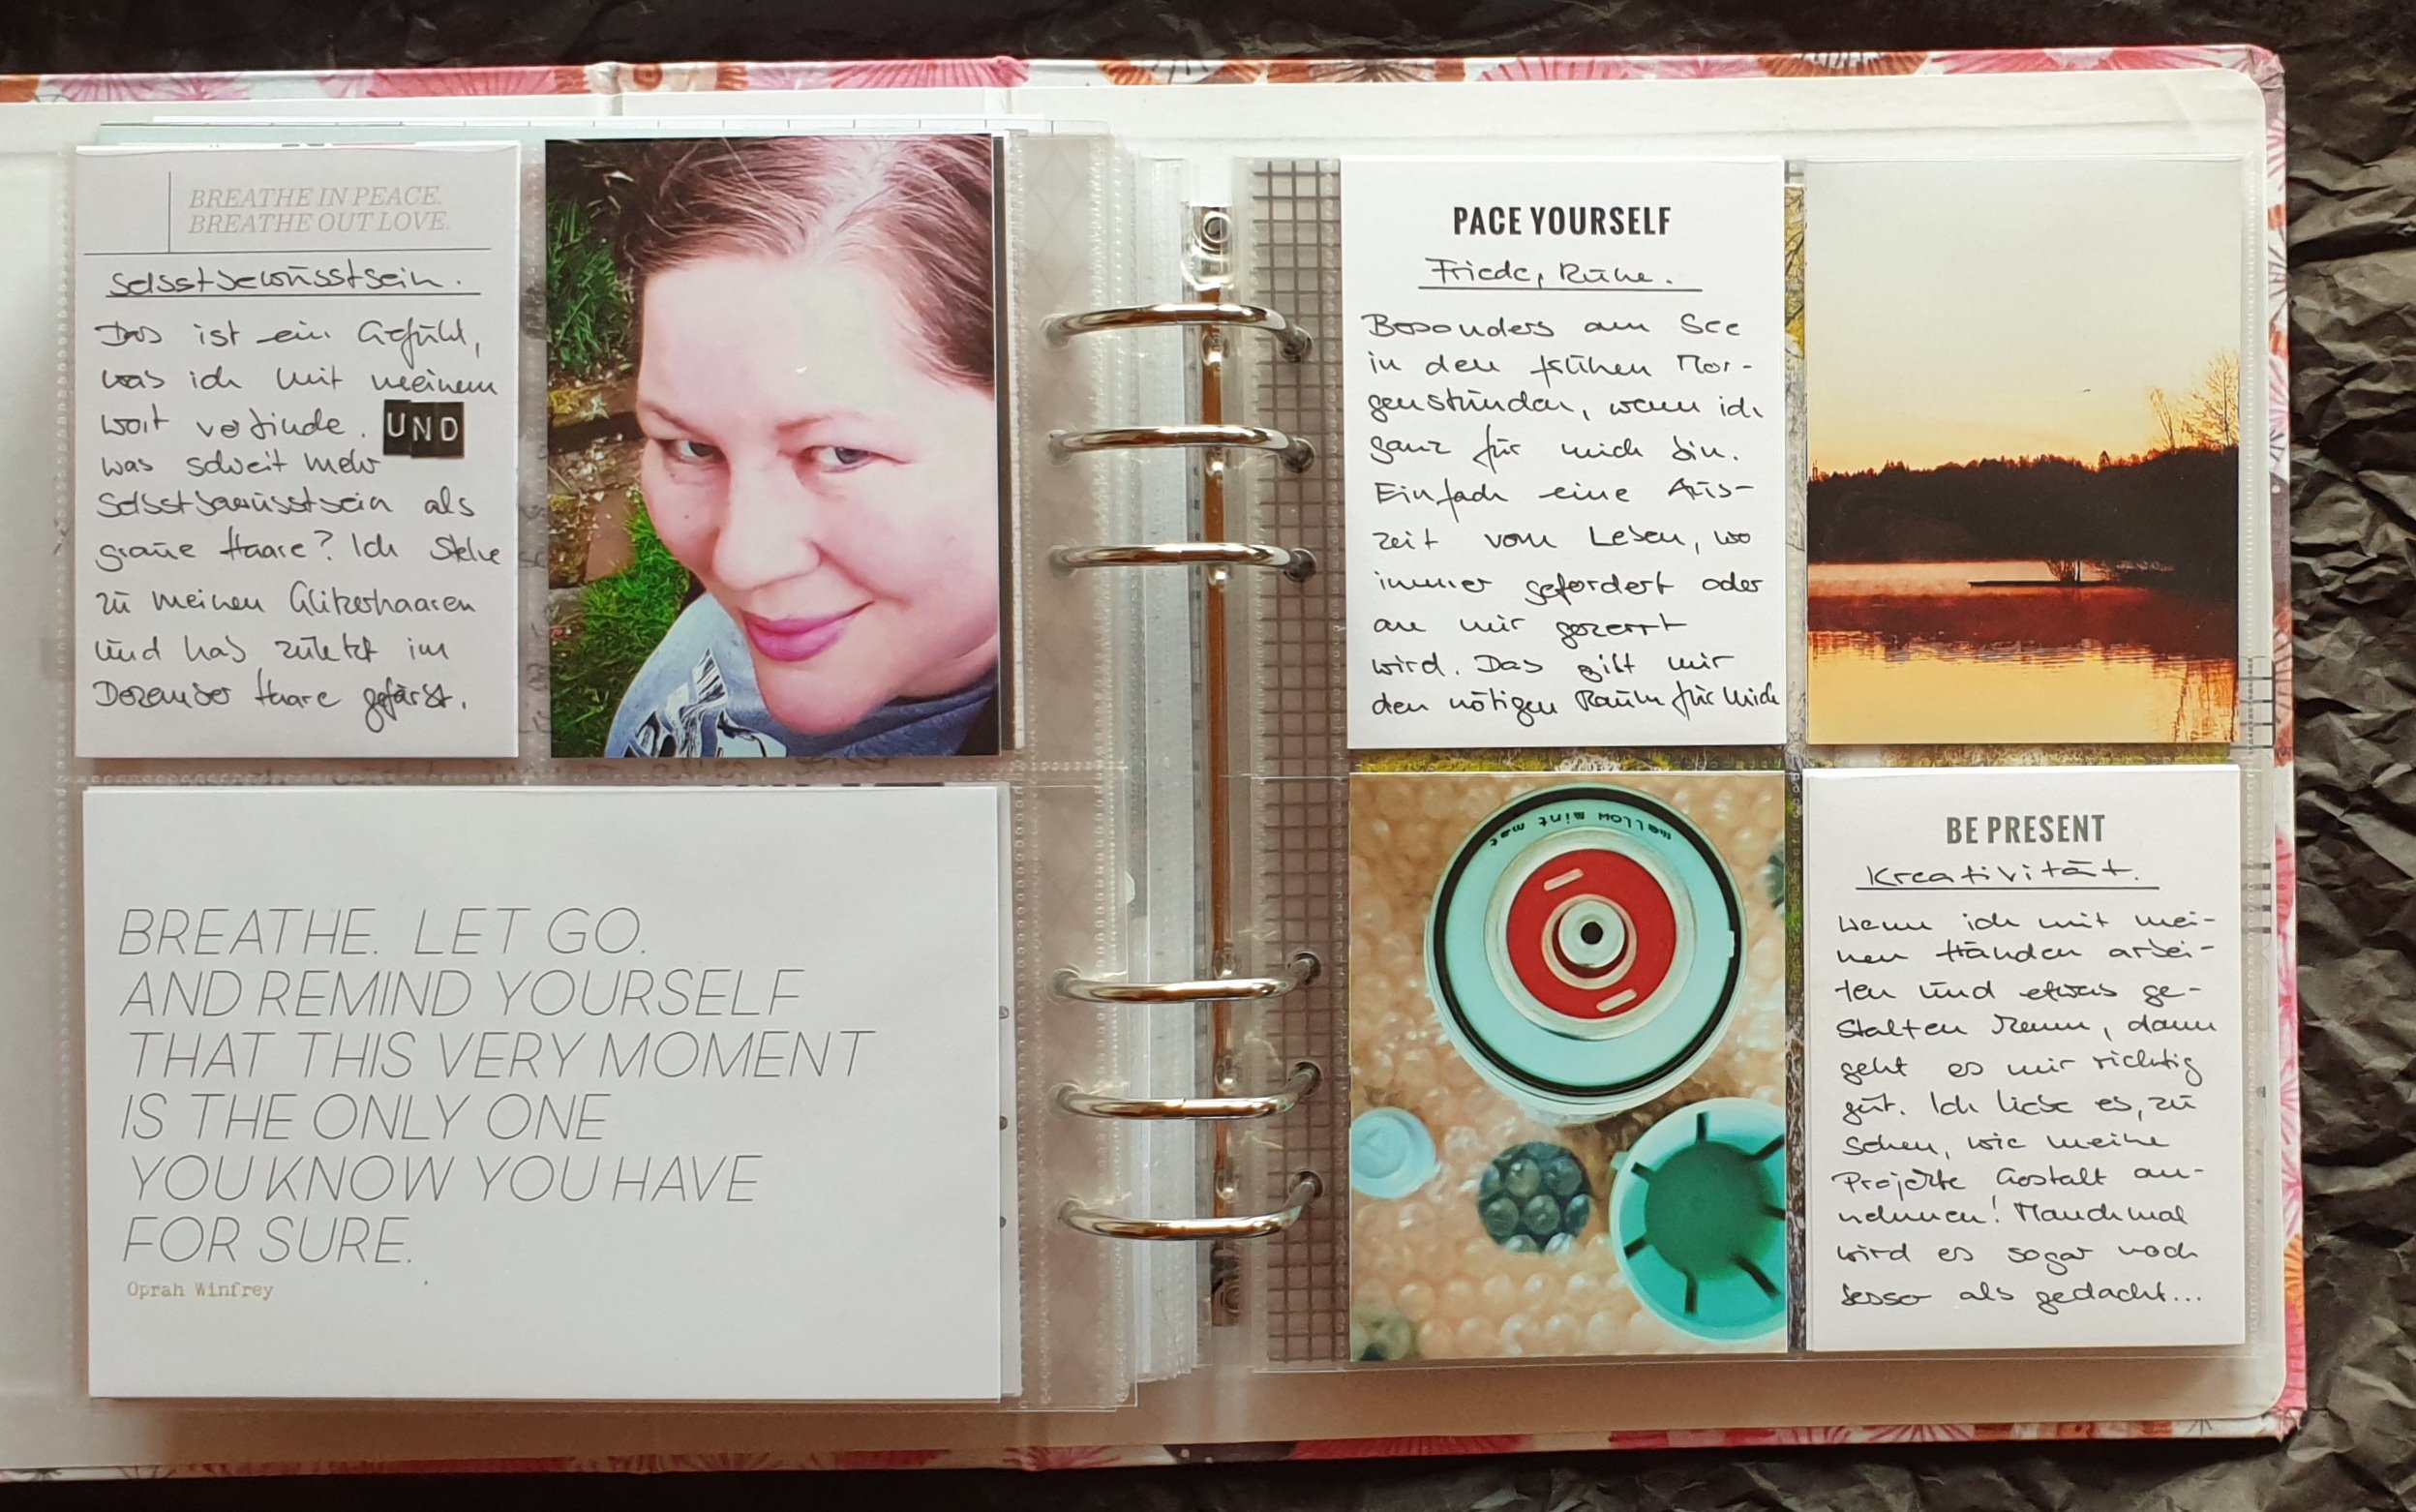 BREATHE IN PEACE.
BREATHE OUT LOVE.
Selbstbewusstsein.
Das ist ein Gefühl,
was ich mit meinem
Wort verbinde. UND
was schreit mehr
Selbstbewusstsein als
graue Haare? Ich stehe
zu meinen Glitzerhaaren
und hab zuletzt im
Dezember Haare gefärbt.
BREATHE. LET GO.
AND REMIND YOURSELF
THAT THIS VERY MOMENT
IS THE ONLY ONE
YOU KNOW YOU HAVE
FOR SURE.
Oprah Winfrey
PACE YOURSELF
Friede, Ruhe.
Besonders am See
in den frühen Mor-
genstunden, wenn ich
ganz für mich bin.
Einfach eine Aus-
zeit vom Leben, wo
immer gefordert oder
an mir gezerrt
wird. Das gibt mir
den nötigen Raum für mich
mellow mint mat
BE PRESENT
Kreativität.
Wenn ich mit mei-
nen Händen arbei-
ten und etwas ge-
stalten kann, dann
geht es mir richtig
gut. Ich liebe es, zu
sehen, wie meine
Projekte Gestalt an-
nehmen! Manchmal
wird es sogar noch
besser als gedacht...